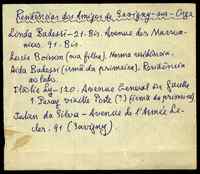 Residências dos Amigos de Savigny-sur-Orge
Linda Badessi-21. Bis. Avenue des Marronniers. 91. Bis.
Lucile Boisson (sua filha). Mesma residência.
Aïda Badessi (irmã da primeira). Residência ao lado.
120. Avenue General de Gaulle
Paray vieille Poste (?) (firma da primeira)
Julian da Silva - Avenue de l'Armée Leclerc. 91 (Savigny)